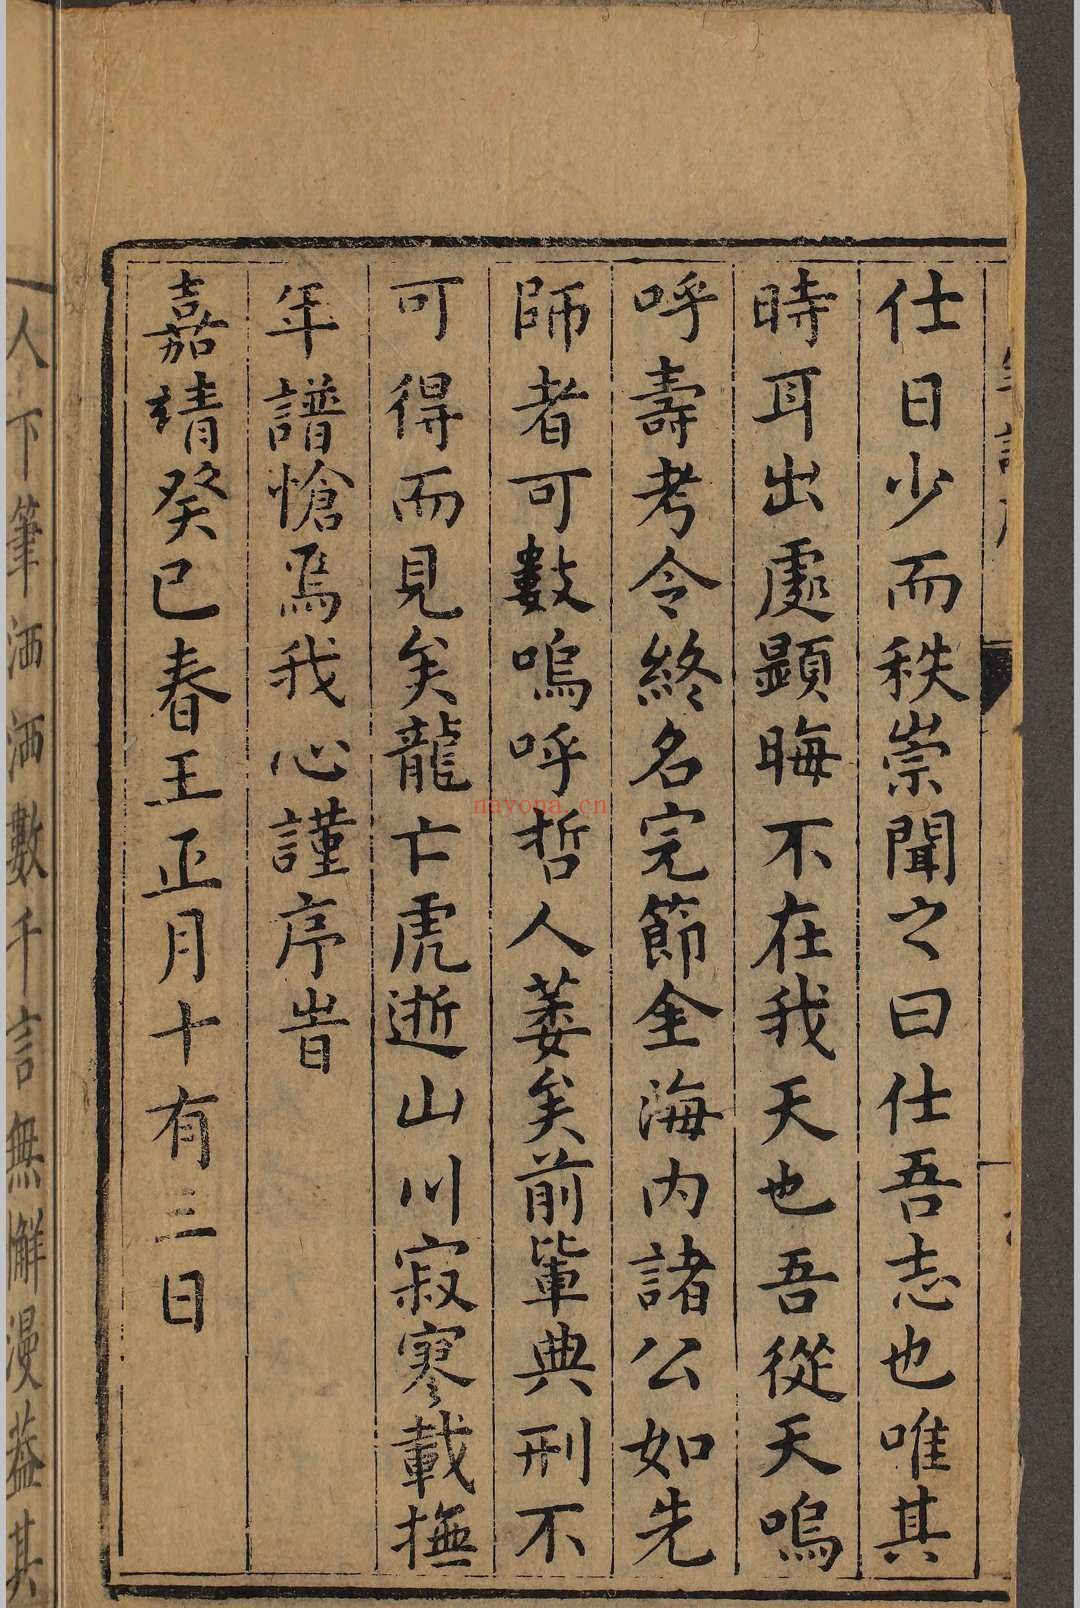 仕日少而秩崇聞之曰仕吾志也唯其
時耳出處顯晦不在我天也吾從天嗚
呼壽考令終名完節全海内諸公如先
師者可數嗚呼哲人萎矣前軰典刑不
可得而見矣龍亡虎逝山川寂寥載撫
年譜愴焉我心謹序旹
嘉靖癸巳春王正月十有三日
人下筆洒洒數千言無懈漫葢其
nayona.cn